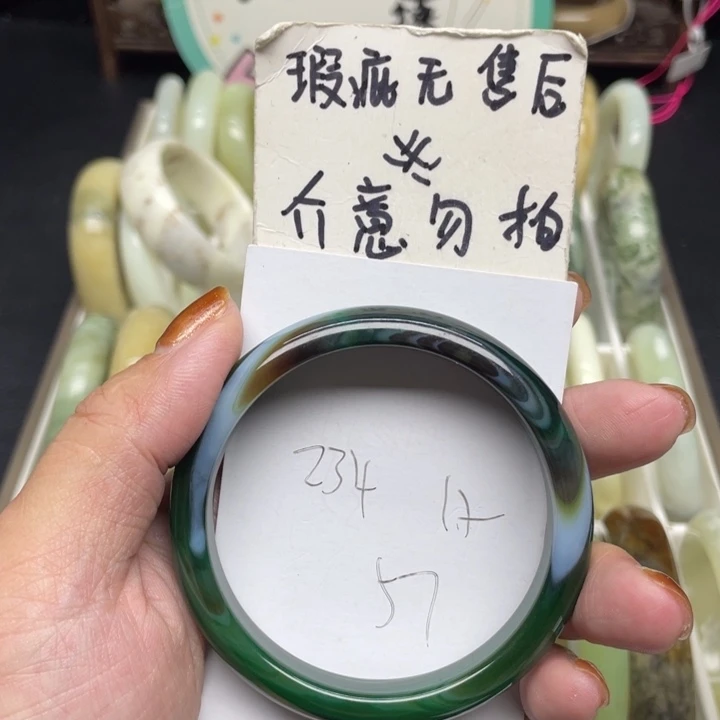 瑕疵无售后
介意勿拍
234
17
57